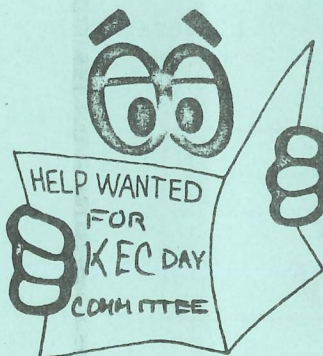 HELP WANTED
FOR
KEC DAY
COMMITTEE